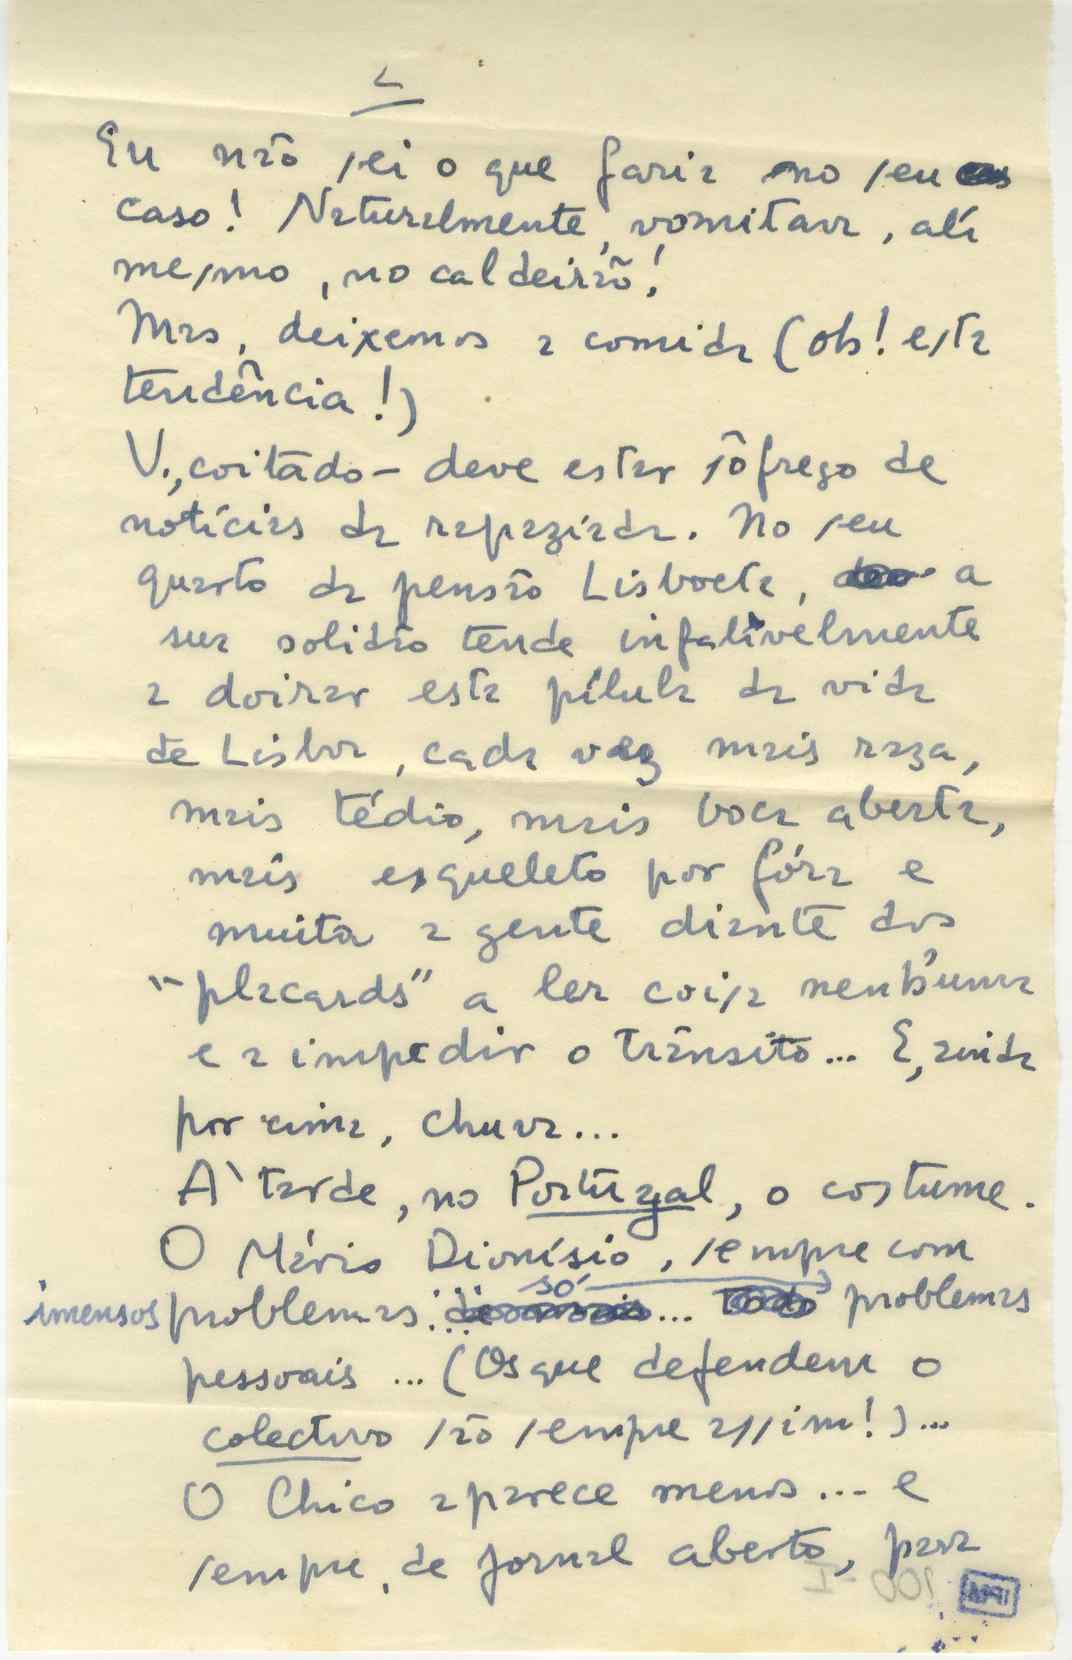 2
Eu não sei o que faria no seu
caso! Naturalmente, vomitava, ali
mesmo, no caldeirão!
Mas, deixemos a comida (oh! esta
tendência!)
V., coitado - deve estar sôfrego de
notícias da rapaziada. No seu
quarto da pensão Lisboeta, a
sua solidão tende infalivelmente
a doirar esta pílula da vida
de Lisboa, cada vez mais raza,
mais tédio, mais boca aberta,
mais esqueleto por fóra e
muita a gente diante dos
"placards" a ler coisa nenhuma
e a impedir o trânsito... E, ainda
por cima, chuva...
A' tarde, no Portugal, o costume.
O Mário Dionísio, sempre com
imensos problemas... só problemas
pessoais ... (Os que defendem o
colectivo são sempre assim!)...
O Chico aparece menos... e
sempre, de jornal aberto, para
100-I